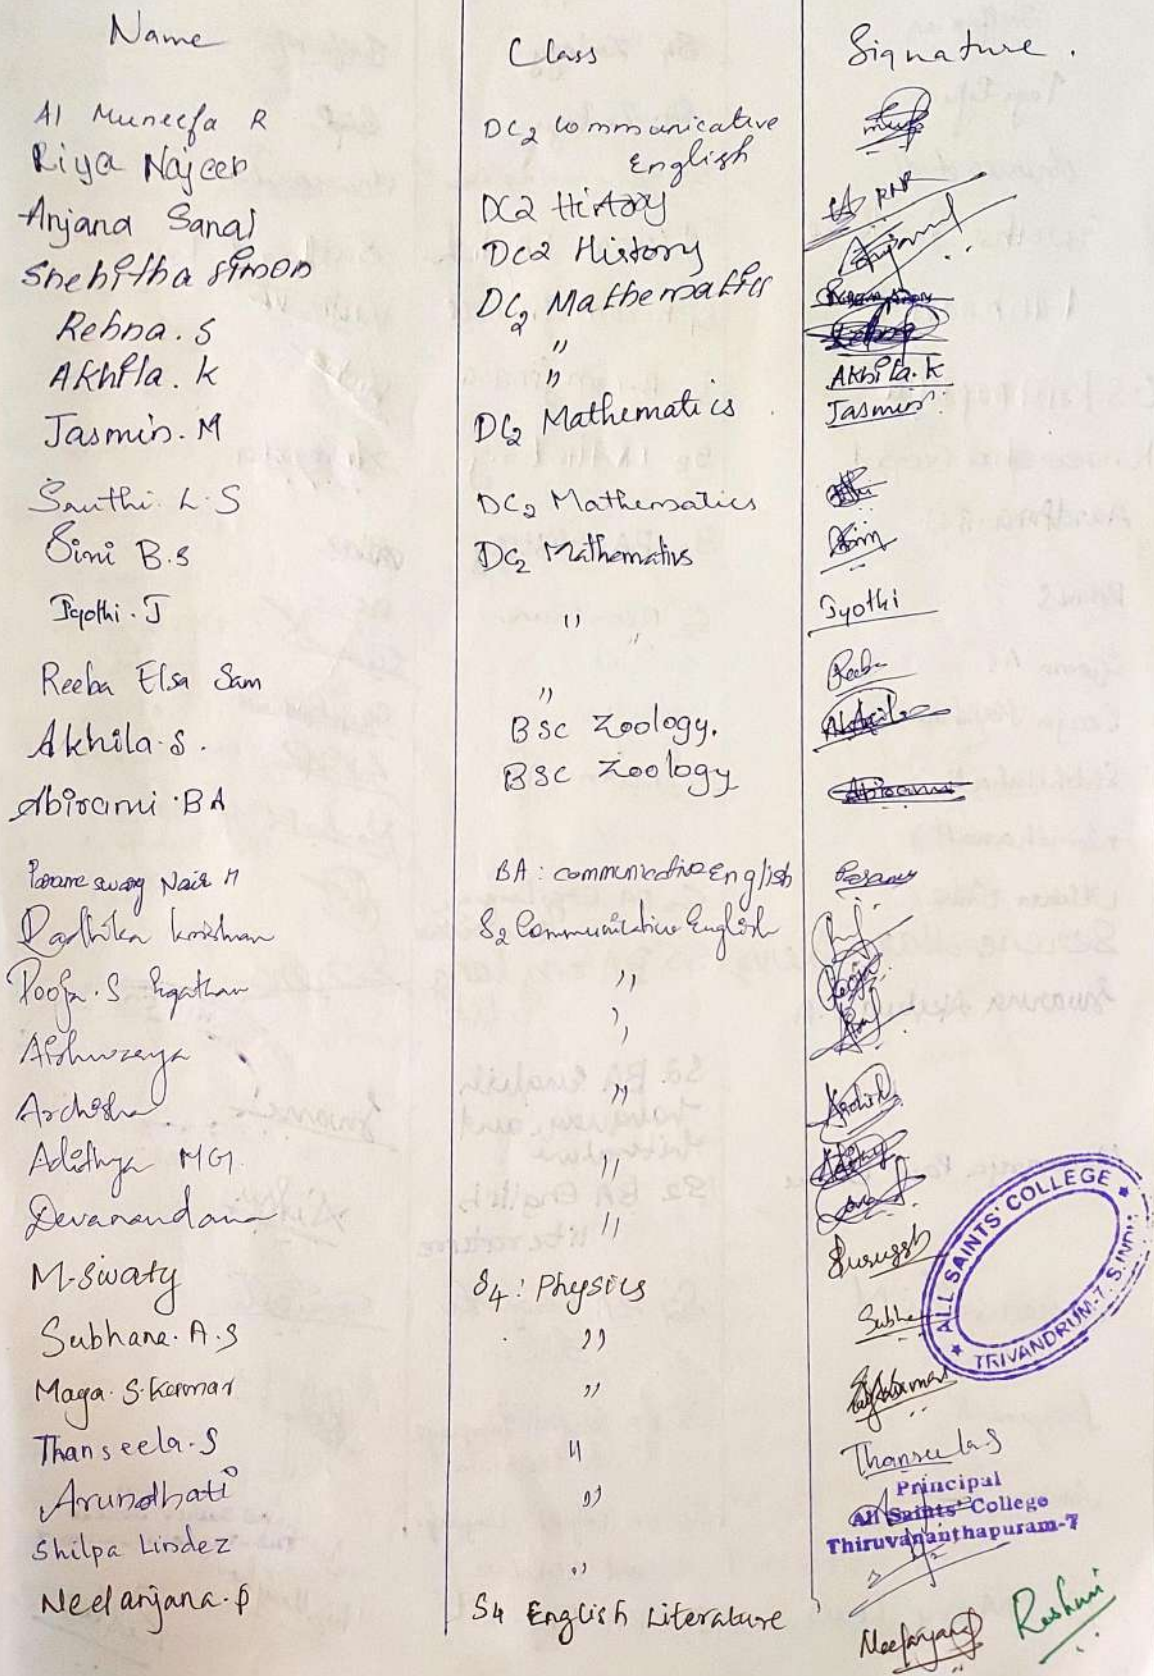 Name Class Signature.
Al Muneefa R DC2 Communicative
English
Riya Najeeb DC2 History RNR
Anjana Sanal DC2 History Anjana
Snehitha Simon DC2 Mathematics
Rehna. S "
Akhila. K " Akhila. K
Jasmin. M DC2 Mathematics Jasmin
Sruthi. L. S DC2 Mathematics
Sini B.S DC2 Mathematics Sini
Jyothi. J " Jyothi
Reeba Elsa Sam " Reeba
Akhila. S. BSc Zoology. Akhila
Abirami. BA BSc Zoology Abirami
Parameswary Nair M BA: communicative English
Radhika Krishnan S2 Communicative English
Pooja. S " Pooja
Aishwarya "
Archisha "
Adithya MG "
Devanandana "
M. Swaty S4: Physics
Subhana. A. S " Subha
Maga. S. Kumar "
Thanseela. S " Thanseela. S
Arundhati "
Shilpa Lindez "
Neelanjana. P S4 English Literature Neelanjana Reshmi
ALL SAINTS' COLLEGE
TRIVANDRUM-7, S. INDIA
Principal
All Saints' College
Thiruvananthapuram-7